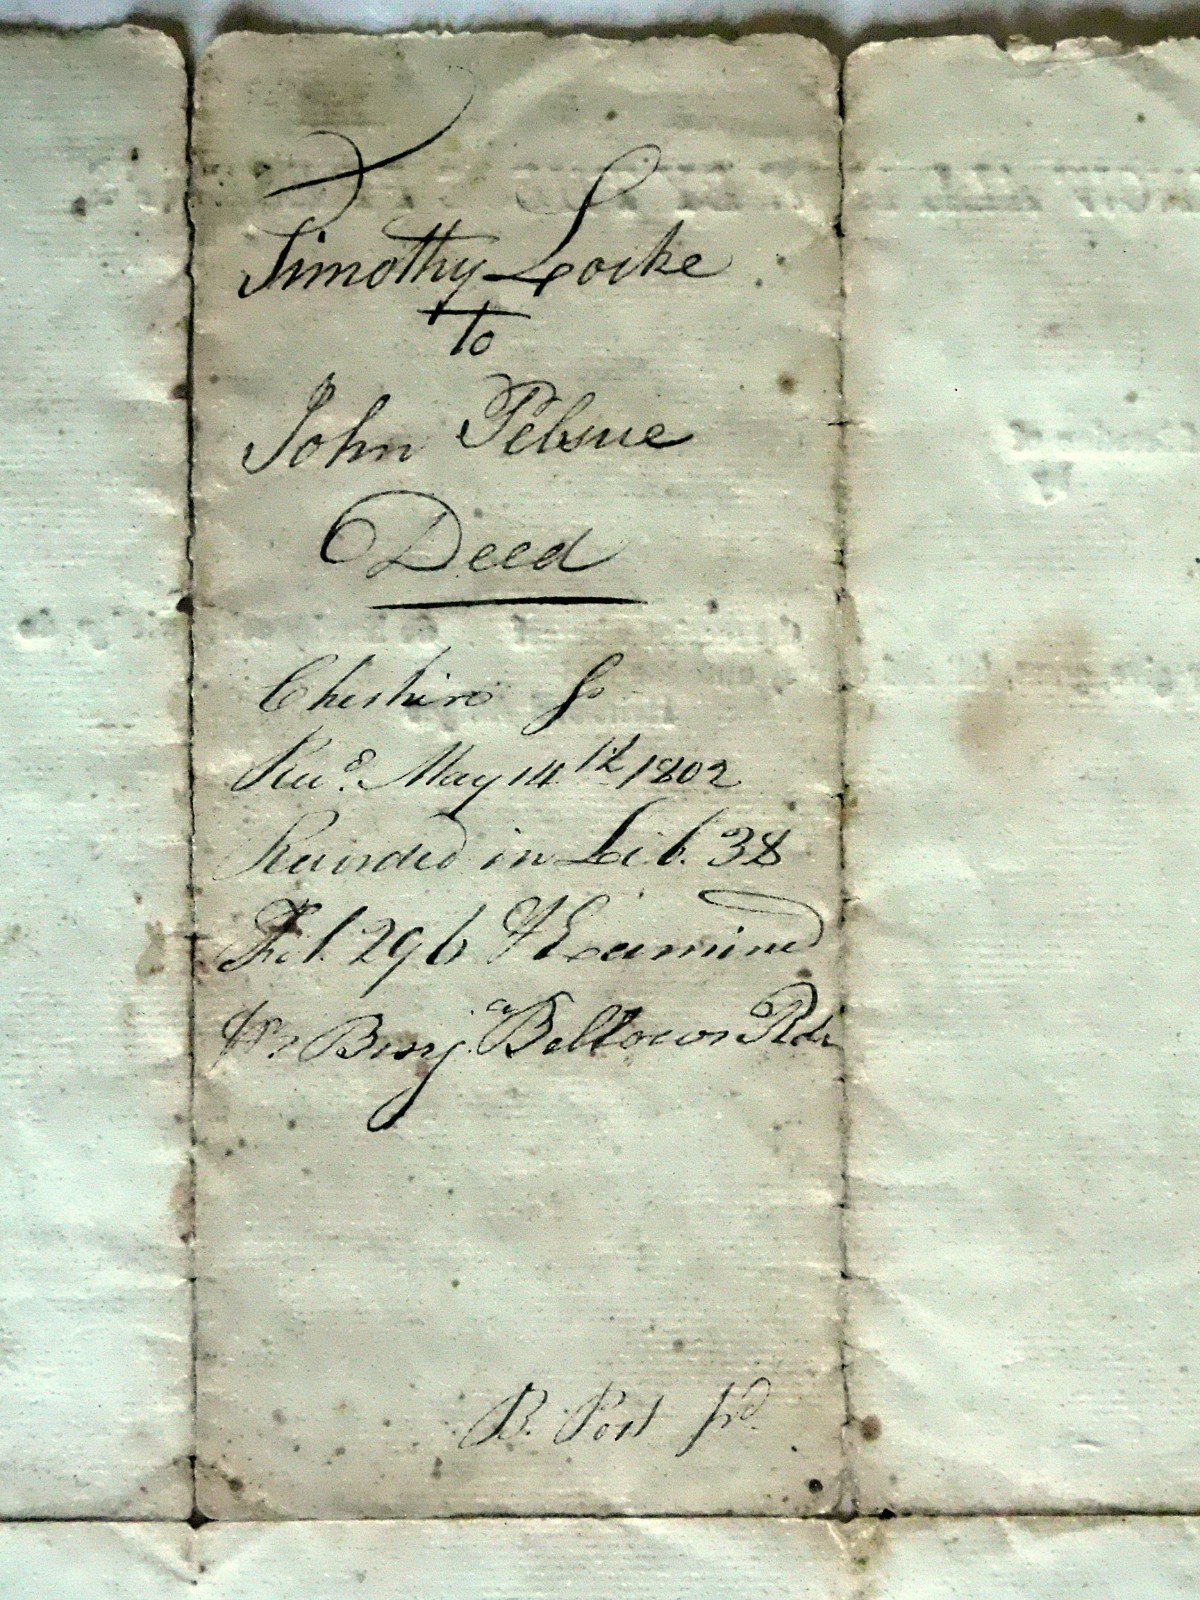 Timothy Locke
to
John Pelsue
Deed
Cheshire Ss
Recd. May 14th 1802
Recorded in Lib. 38
Fol. 296 & Examined
Pr Benja Bellows Rdr
B. Post pd